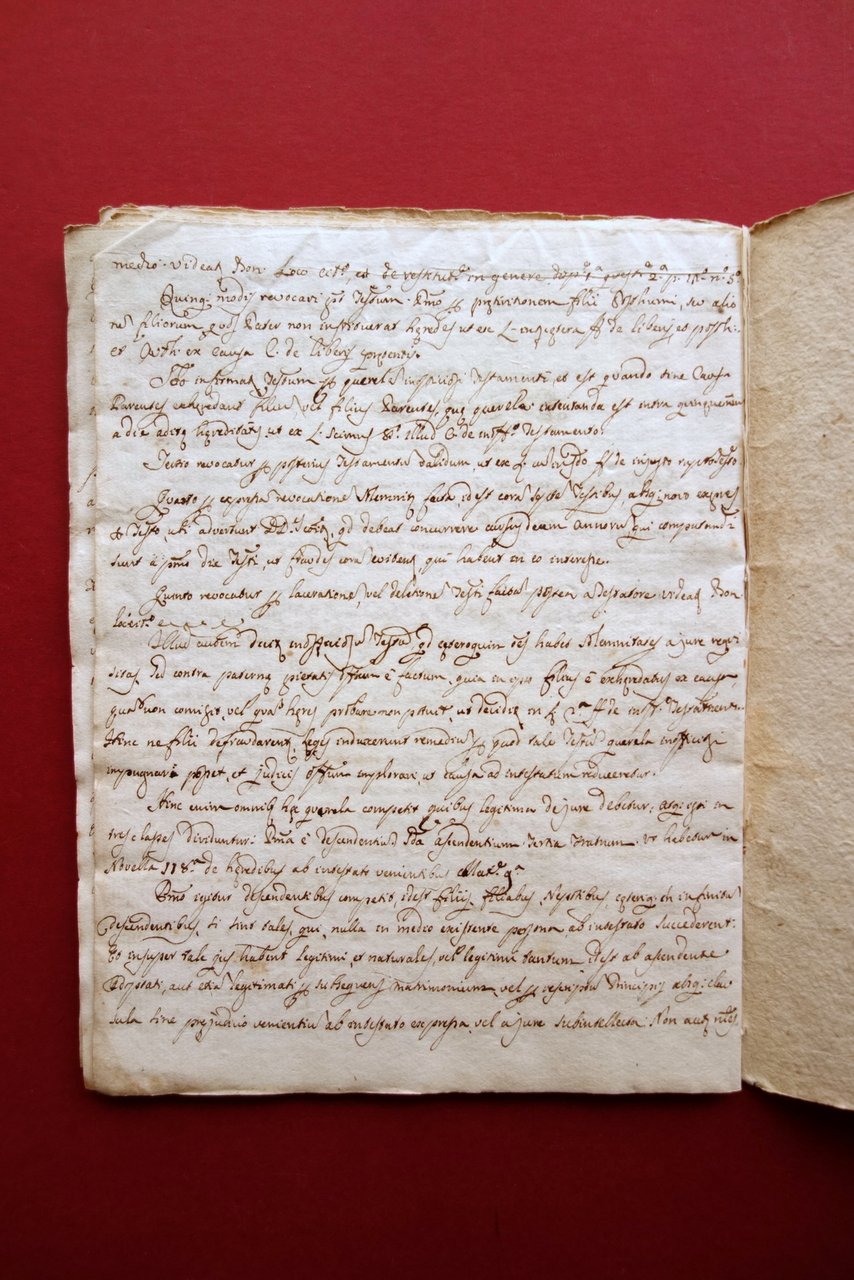 medio. Videatq Bon. Loco cit.º, et de restitut.e in genere disp.
Quinq modis revocari pt Testum. Pmo p pretiritionem filii Posthumi, seu alio
filiorum, quos Pater non instituerat hæredes ut ex L. ff de liberis et posth:
et Auth: ex causa C. de liberis preteritis.
2do infirmat Testum p querela inofficiosi Testamenti, et est quando sine Causa
Parentes exhæredant filios, vel filius Parentes, quæ querela intentanda est intra quinquenniu
a die aditæ hæreditatis, ut ex L. Scimus §. illud C. de inoff.º Testamento.
Tertio revocatur p posterius Testamentu validum, ut ex L. ff de injusto rupto Testo
Quarto p expressa revocatione solemnit facta, idest cora septe Testibus, absq novo
Testo, uti advertunt DD. qd debeat concurrere cursus decem annoru qui computandi
sunt a pmo die Testi, ut fraudes cora evitent, qui habent in eo interesse.
Quinto revocabitur p laceratione, vel deletione Testi facta postea a Testatore videatq Bon.
loc: cit.º
Illud autem dicit inofficiosu Testm qd ceteroquin oes habet solemnitates a jure requi
sitas, sed contra paternæ pietatis offitium e factum, quia in eo filius e exhæredatus ex causa,
qua non comisit, vel qua hæres probare non potuit, ut decidit in L. ff de inoff. Testament.
Hinc ne filii defraudarent, leges induxerunt remediu p quod tale Testu querela inofficiosi
impugnari posset, et judicis offitum implorari, ut causa ad intestatum reduceretur.
Hinc enim omnibq hæc querela competit quibus legitima de jure debetur; atq isti in
tres classes dividuntur. Pma e descendentiu, 2da ascendentium Tertia Fratrum. Ut habetur in
Novella 118. de hæredibus ab intestato venientibus
Pmo igitur descendentibus competit, idest filijs, filiabus, Nepotibus, ceterisq in infinitu
descendentibus, si sint tales, qui, nulla in medio existente persona ab intestato succederent:
Et insuper tale jus habent legitimi, et naturales, vel legitimi tantum, idest ab ascendente
Adoptati, aut etia legitimati p subsequens matrimonium, vel p rescriptu Principis absq clau
sula sine prejudicio venientiu ab intestato expressa, vel a jure subintellecta. Non aut